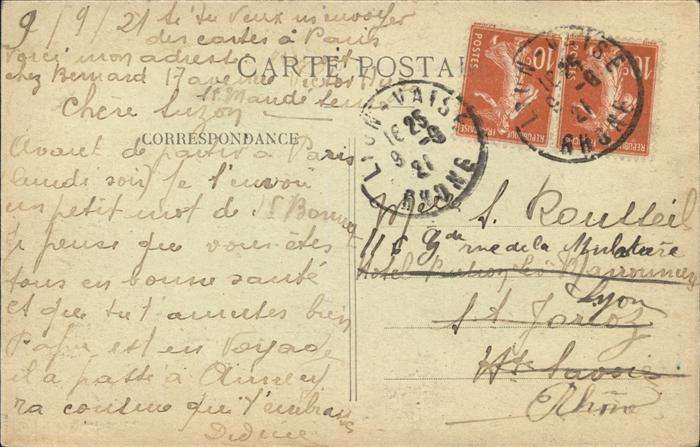 9/9/21 si tu veux m'envoyer
des cartes à Paris
voici mon adresse
chez Bernard 17 avenue Victor
St Mandé
CARTE POSTALE
Chère Suzon
CORRESPONDANCE
Avant de partir à Paris
lundi soir je t'envoi
un petit mot de St Bonnet
je pense que vous êtes
tous en bonne santé
et que tu t'amuses bien
Papa est en voyage
il a passé à
ta cousine qui t'embrasse
POSTES
10
RÉPUBLIQUE FRANÇAISE
POSTES
10
RÉPUBLIQUE FRANÇAISE
LYON-VAISE
16 25
9 -9
21
RHONE
LYON-VAISE
16 25
9 -9
21
RHONE
Melle S. Rousseil
115 Gde rue de la Mulatière
Hôtel
Lyon
St Jorioz
Hte Savoie
Rhône